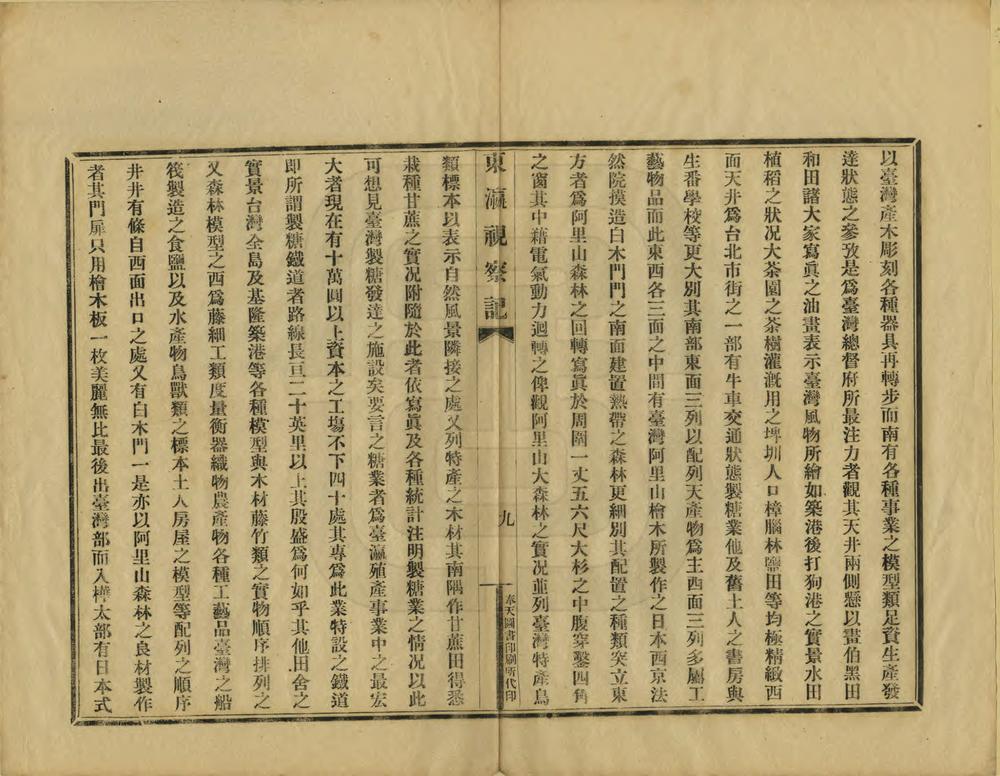 以臺灣產木彫刻各種器具再轉步而南有各種事業之模型類足資生產發
達狀態之參攷是爲臺灣總督府所最注力者觀其天井兩側懸以畫伯黑田
和田諸大家寫眞之油畫表示臺灣風物所繪如築港後打狗港之實景水田
植稻之狀况大茶園之茶樹灌漑用之埤圳人口樟腦林鹽田等均極精緻西
面天井爲台北市街之一部有牛車交通狀態製糖業他及舊土人之書房與
生番學校等更大別其南部東面三列以配列天產物爲主西面三列多屬工
藝物品而此東西各三面之中間有臺灣阿里山檜木所製作之日本西京法
然院摸造白木門門之南面建置熱帶之森林更細別其配置之種類突立東
方者爲阿里山森林之回轉寫眞於周圍一丈五六尺大杉之中腹穿鑿四角
之窗其中藉電氣動力迴轉之俾觀阿里山大森林之實况並列臺灣特產鳥
東瀛視察記
九
奉天圖書印刷所代印
類標本以表示自然風景隣接之處又列特產之木材其南隅作甘蔗田得悉
栽種甘蔗之實况附隨於此者依寫眞及各種統計注明製糖業之情况以此
可想見臺灣製糖發達之施設矣要言之糖業者爲臺瀛殖產事業中之最宏
大者現在有十萬圓以上資本之工塲不下四十處其專爲此業特設之鐵道
即所謂製糖鐵道者路線長亘二十英里以上其殷盛爲何如乎其他田舍之
實景台灣全島及基隆築港等各種模型與木材藤竹類之實物順序排列之
又森林模型之西爲藤細工類度量衡器織物農產物各種工藝品臺灣之船
筏製造之食鹽以及水產物鳥獸類之標本土人房屋之模型等配列之順序
井井有條自西面出口之處又有白木門一是亦以阿里山森林之良材製作
者其門扉只用檜木板一枚美麗無比最後出臺灣部而入樺太部有日本式